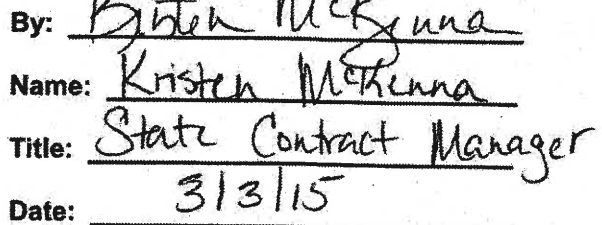 By: Kristen McKenna
Name: Kristen McKenna
Title: State Contract Manager
Date: 3/3/15